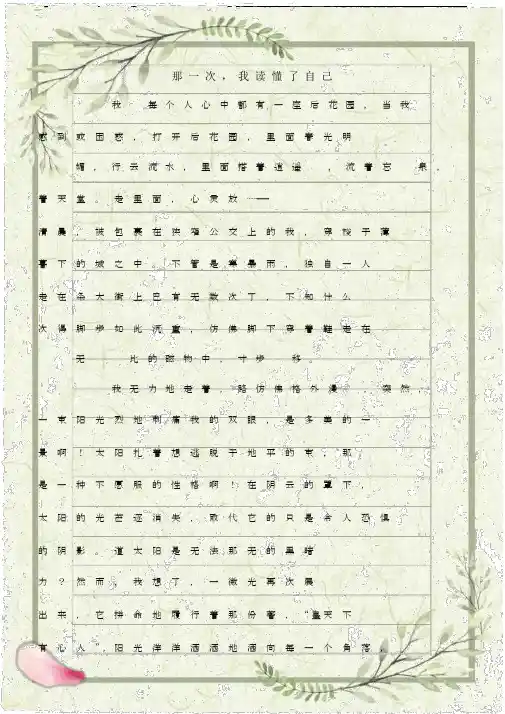 那一次，我读懂了自己
我 每个人心中都有一座后花园，当我
感到或困惑，打开后花园，里面着光明
媚，行云流水，里面搭着逍遥 ，流着忘 泉，
着天堂。走里面，心灵放——
清晨，被包裹在狭窄公交上的我，穿梭于薄
暮下的城之中，不管是寒暴雨，独自一人
走在条大街上已有无数次了，不知什么
次得脚步如此沉重，仿佛脚下穿着鞋走在
无 比的磁物中，寸步 移。
我无力地走着，路仿佛格外漫 突然，
一束阳光烈地刺痛我的双眼，是多美的一
景啊！太阳扎着想逃脱于地平的束，那
是一种不愿服的性格啊！在阴云的罩下，
太阳的光芒逐消失，取代它的只是令人恐惧
的阴影。道太阳是无法那无的黑暗
力？然而，我想了，一微光再次展
出来，它拼命地履行着那份着，“皇天下
有心人”，阳光洋洋洒洒地洒向每一个角落，